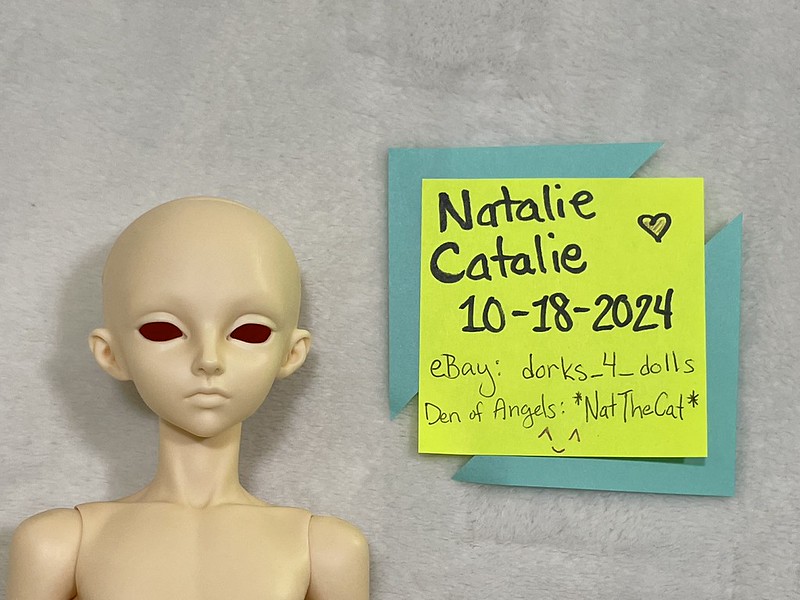 Natalie
Catalie
10-18-2024
eBay: dorks_4_dolls
Den of Angels: *NatTheCat*